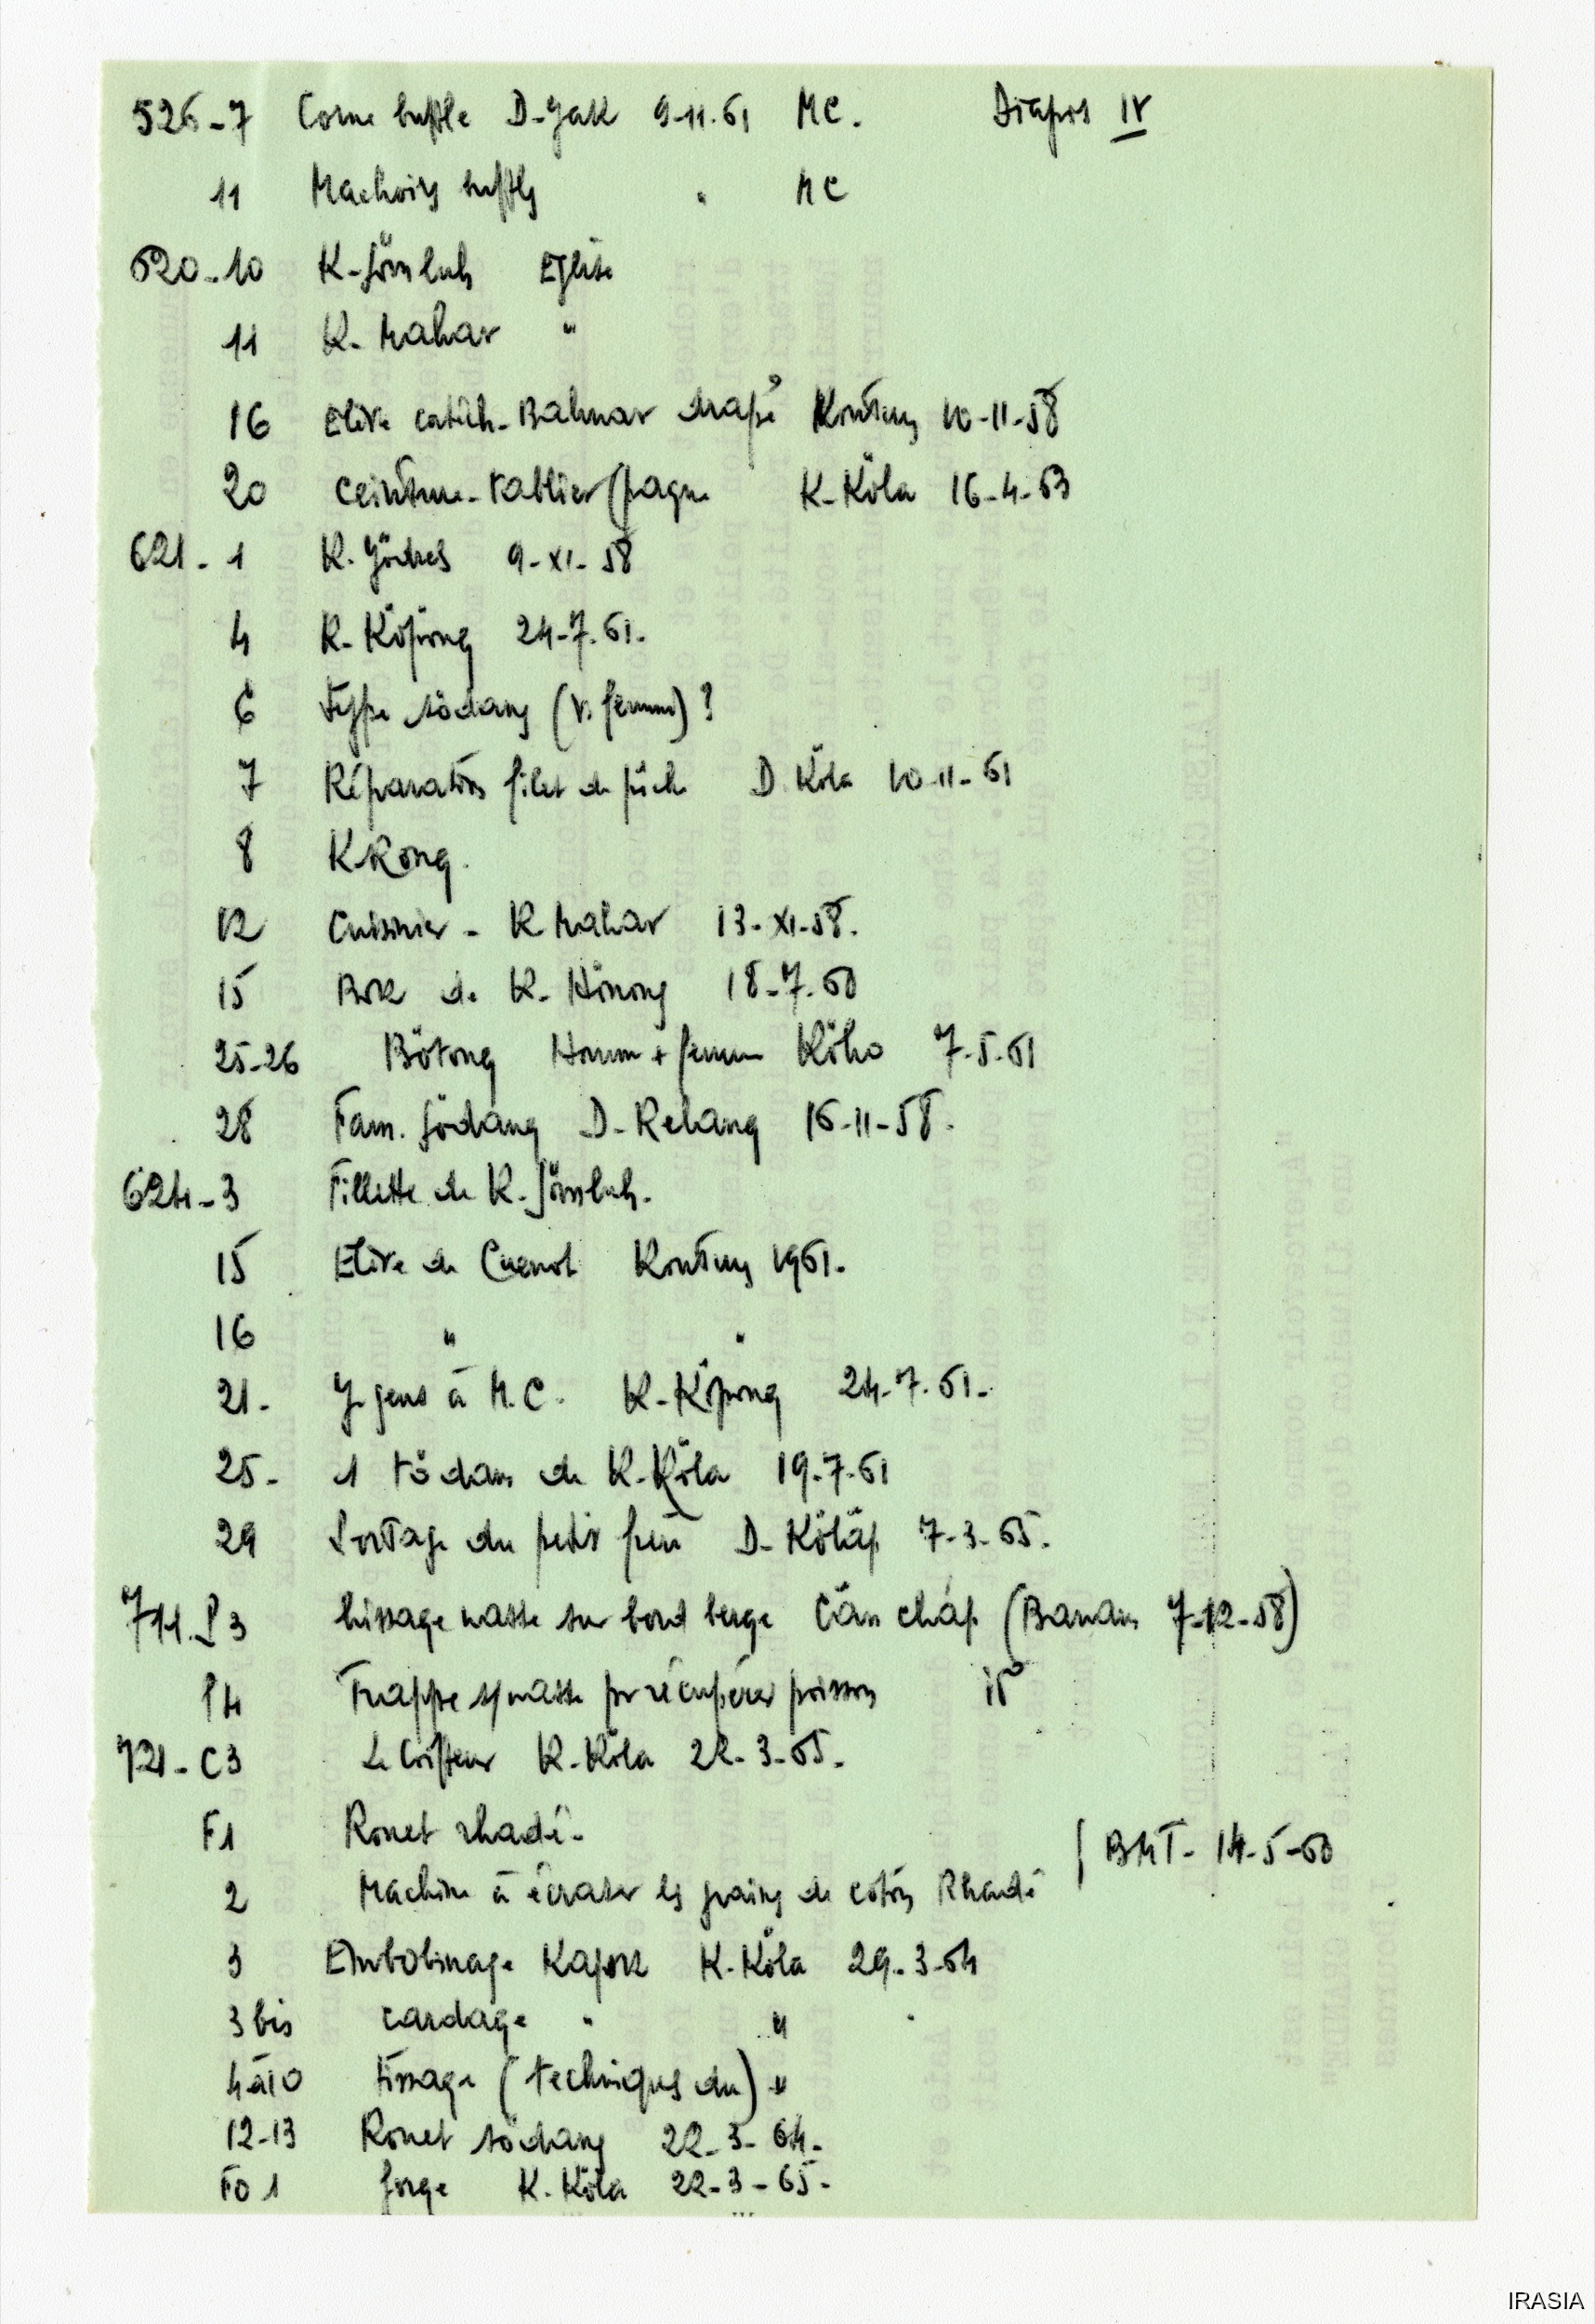 526-7 Corne buffle D-Yak 9-11.61 MC. Diapos IV
11 Machoirs buffles " MC
620-10 K-Jömluh Eglise
11 K. Mahar "
16 Elève catéch. Bahnar drapé Kontum 10-11-58
20 Ceinture-tablier/pagne K-Köla 16-4-63
621-1 K. 9-XI-58
4 K-Köpong 24-7.61.
6 Type södang (v. femme) ?
7 Réparations filet de pêche D Köla 10-11-61
8 KRong.
12 Cuisinier - K Mahar 13-XI-58.
15 Bok de K-Hönong 18-7.60
25-26 Bötong Homme + femme Köho 7-5-61
28 Fam. Södang D-Relang 16-11-58.
624-3 Fillette de K-Jömluh.
15 Elève de Cuenot Kontum 1961.
16 " "
21- J. gens à M.C. K-Köpong 24-7.61-
25- 1 tödam de K-Köla 19.7.61
29 Portage du petit frère D-Köläp 7-3-65.
711.P3 hissage nasse sur bord berge (Banam 7-12-58)
P4 Frappe s/nasse pr récupérer poisson id
721-C3 Le Coiffeur K-Köla 22-3-65-
F1 Rouet rhadé- | BMT- 14-5-60
2 Machine à écraser les grains de coton Rhadé
3 Embobinage Kapok K-Köla 29-3-64
3 bis cardage " " "
4 à 10 Tissage (techniques du) "
12-13 Rouet södang 22-3-64-
Fo 1 forge K. Köla 22-3-65-
IRASIA